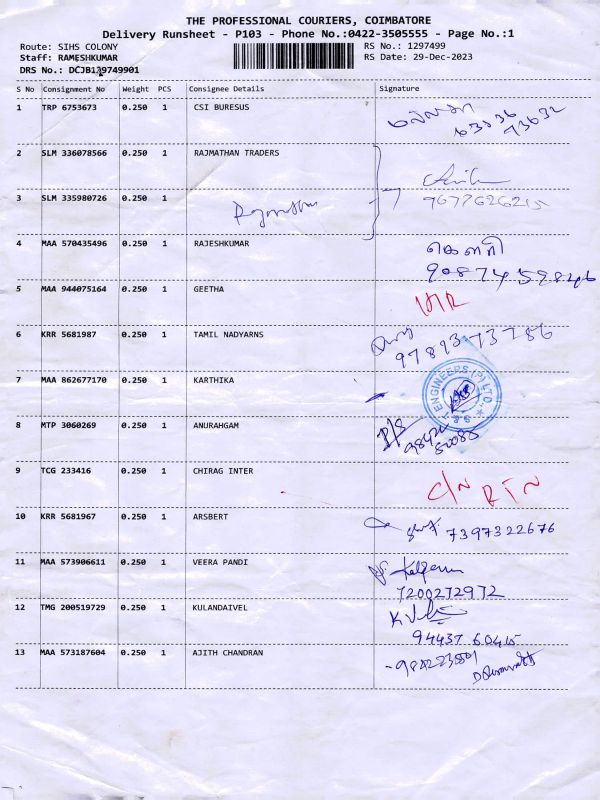 THE PROFESSIONAL COURIERS, COIMBATORE
Delivery Runsheet - P103 - Phone No.:0422-3505555 - Page No.:1
Route: SIHS COLONY RS No.: 1297499
Staff: RAMESHKUMAR RS Date: 29-Dec-2023
DRS No.: DCJB139749901
S No Consignment No Weight PCS Consignee Details Signature
1 TRP 6753673 0.250 1 CSI BURESUS
63836
73632
2 SLM 336078566 0.250 1 RAJMATHAN TRADERS
3 SLM 335980726 0.250 1 9677626215
4 MAA 570435496 0.250 1 RAJESHKUMAR
9087459846
5 MAA 944075164 0.250 1 GEETHA
6 KRR 5681987 0.250 1 TAMIL NADYARNS
9789373786
7 MAA 862677170 0.250 1 KARTHIKA
S&T ENGINEERS (P) LTD.
8 MTP 3060269 0.250 1 ANURAHGAM
9 TCG 233416 0.250 1 CHIRAG INTER
C/N RTN
10 KRR 5681967 0.250 1 ARSBERT 7397322676
11 MAA 573906611 0.250 1 VEERA PANDI
7200272972
12 TMG 200519729 0.250 1 KULANDAIVEL
94437 60415
13 MAA 573187604 0.250 1 AJITH CHANDRAN